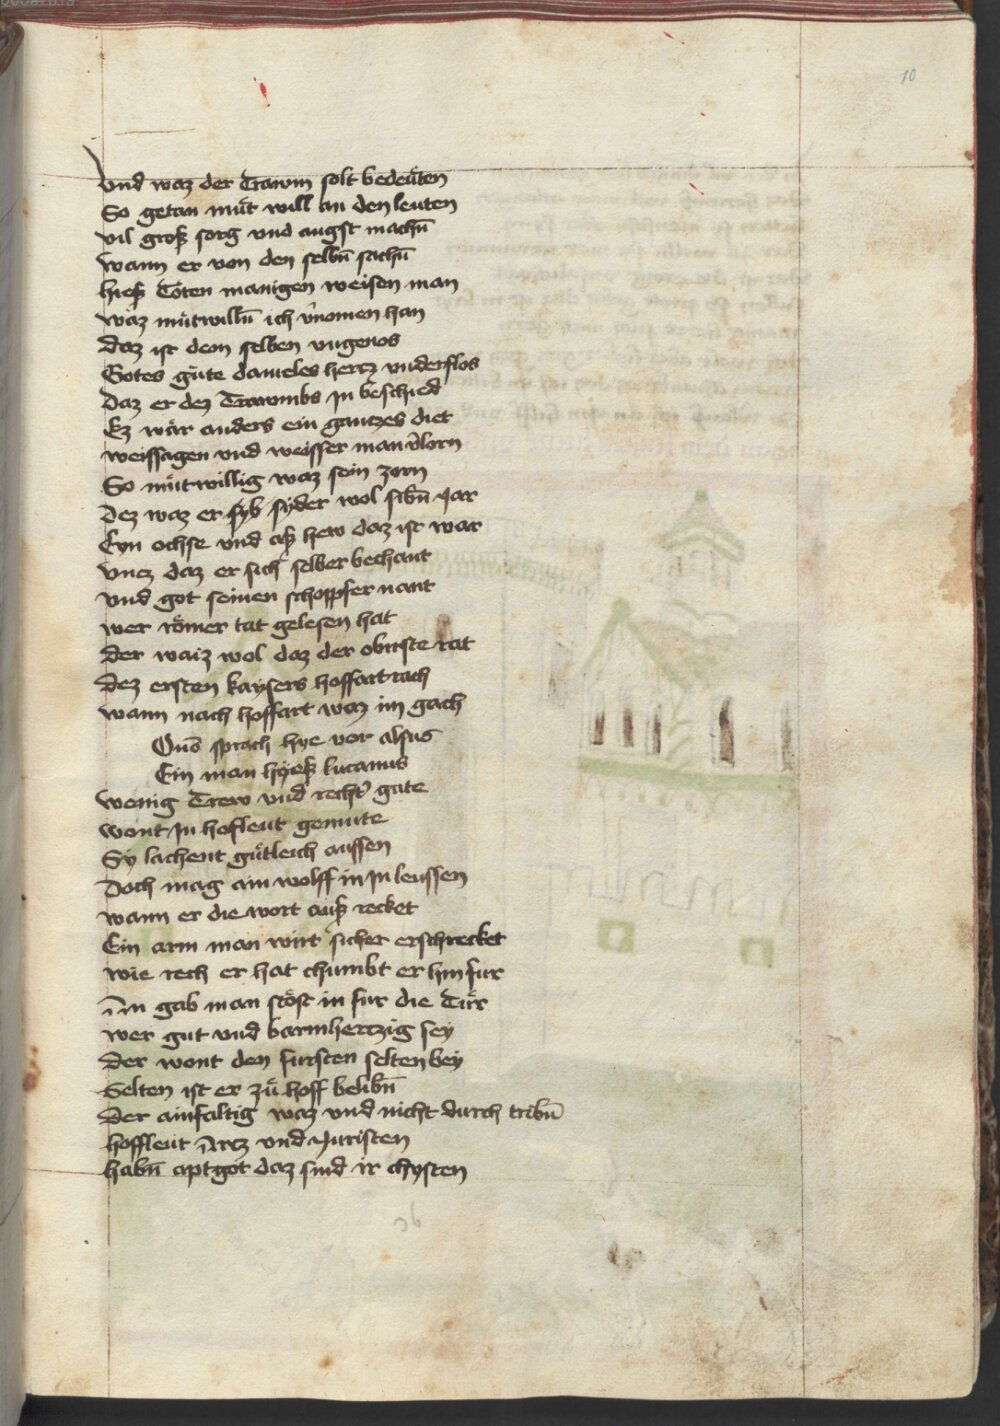 10
Vnd waz der Trawm solt bedeuͤten
So getan muͤt will an den leuten
vil groß sorg vnd angst machn̄
wann er von den selbn̄ sachn̄
hieß Toͤten manigen weisen man
waz muͤtwilln̄ ich v̄nomen han
Daz ist dem selben vngenos
Gotes guͤte danieles hertz vnderflos
Daz er dez Trawmbs In beschied
Ez waͤr anders ein gantzes diet
weissagen vnd weisser man v̄lorn
So muͤtwillig waz sein zorn
Dez waz er syb syder wol sibn̄ Jar
Eyn ochse vnd aß hew daz ist war
vncz daz er sich selber bechant
vnd got seinen schoppfer nant
wer roͤmer tat gelesen hat
Der waiz wol daz der obriste rat
Dez ersten kaysers hoffart rach
wann nach hoffart waz im gach
Sunst sprach hye vor alsus
Ein man hyeß lucanus
wenig Trew vnd recht̄ gute
wont In hofleut gemute
Sy lachent guͤtleich aussen
Doch mag ain wolff in In leussen
wann er die wort auß recket
Ein arm man wirt sicher erschrecket
wie rech er hat chumbt er hin fur
Im gab man stoͤst in fur die Tuͤr
wer gut vnd barmhertzig sey
Der wont den fursten selten bey
Selten ist er zuͤ hoff belibn̄
Der ainfaltig waz vnd nicht durch tribn̄
hoffleut Arcz vnd Juristen
habn̄ aptgot daz sind ir chysten